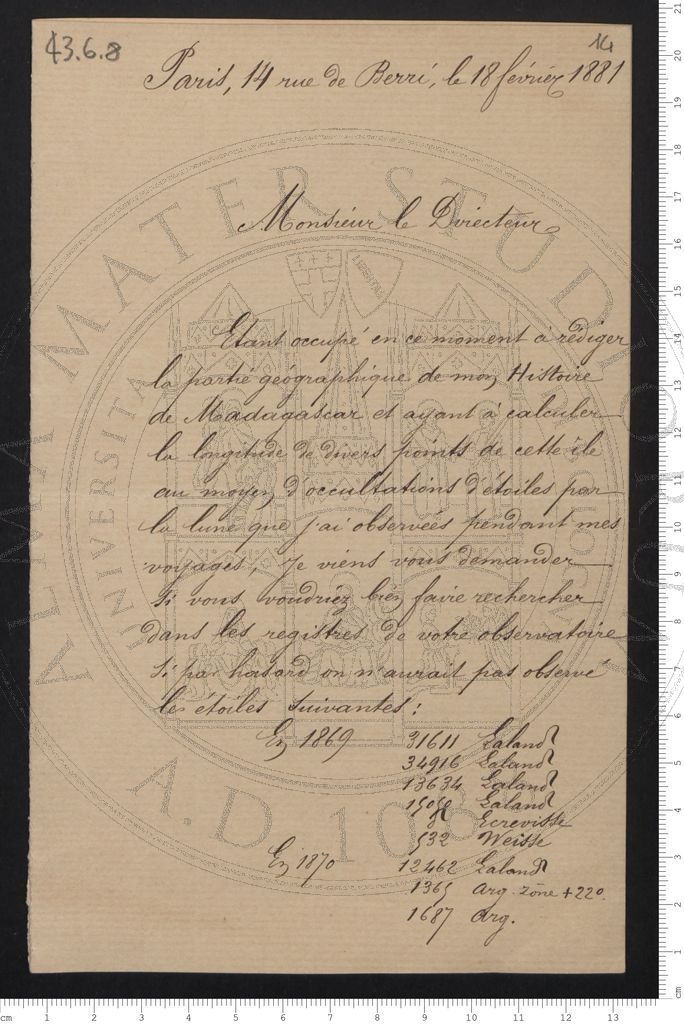 43.6.8
14
Paris, 14 rue de Berri, le 18 février 1881
Monsieur le Directeur
Etant occupé en ce moment à rédiger
la partie géographique de mon Histoire
de Madagascar et ayant à calculer
la longitude de divers points de cette île
au moyen d'occultations d'étoiles par
la lune que j'ai observées pendant mes
voyages, je viens vous demander
si vous voudriez bien faire rechercher
dans les registres de votre observatoire
si par hasard on n'aurait pas observé
les étoiles suivantes :
En 1869 31611 Laland
34916 Laland
13634 Laland
Laland
Ecrevisse
532 Weisse
En 1870 12462 Laland
1365 Arg. zône +22°.
1687 Arg.
ALMA MATER STUDIORUM
A.D. 1088